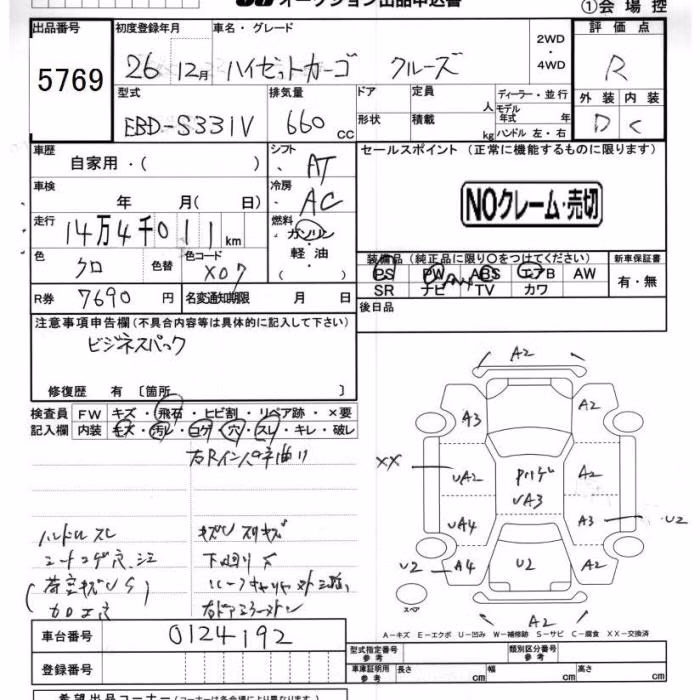 オークション出品申込書
①会場控
出品番号 初度登録年月 車名・グレード 2WD ・ 4WD 評価点
5769 26 12月 ハイゼットカーゴ クルーズ R
型式 排気量 ドア 定員 人 ディーラー・並行 外装 内装
EBD-S331V 660 cc 形状 積載 kg モデル年式 年 ハンドル 左・右 D C
車歴 自家用・( ) シフト AT セールスポイント (正常に機能するものに限ります)
車検 年 月( 日) 冷房 AC
NOクレーム・売切
走行 14万4千011km 燃料 ガソリン・軽油・( )
色 クロ 色替 色コード X07
装備品(純正品に限り〇をつけてください) 新車保証書
PS PW ABS エアB AW 有・無
SR ナビ TV カワ
R券 7690円 名変通知期限 月 日
後日品
注意事項申告欄(不具合内容等は具体的に記入して下さい)
ビジネスパック
修復歴 有〔箇所 〕
検査員 FW キズ・飛石・ヒビ割・リペア跡・×要
記入欄 内装 キズ・汚レ・コゲ・穴・スレ・キレ・破レ
ハンドルスレ キズU スリキズ
A2
A3 A2
XX UA2 UA3 A2
UA4 A3 U2
U2 A4 U2 A2
スペア
A2
A-キズ E-エクボ U-凹み W-補修跡 S-サビ C-腐食 XX-交換済
車台番号 0124192
型式指定番号 参考 類別区分番号 参考
登録番号 車庫証明用 参考 長さ cm 幅 cm 高さ cm
希望出品コーナー(コーナーは各会場により異なります)